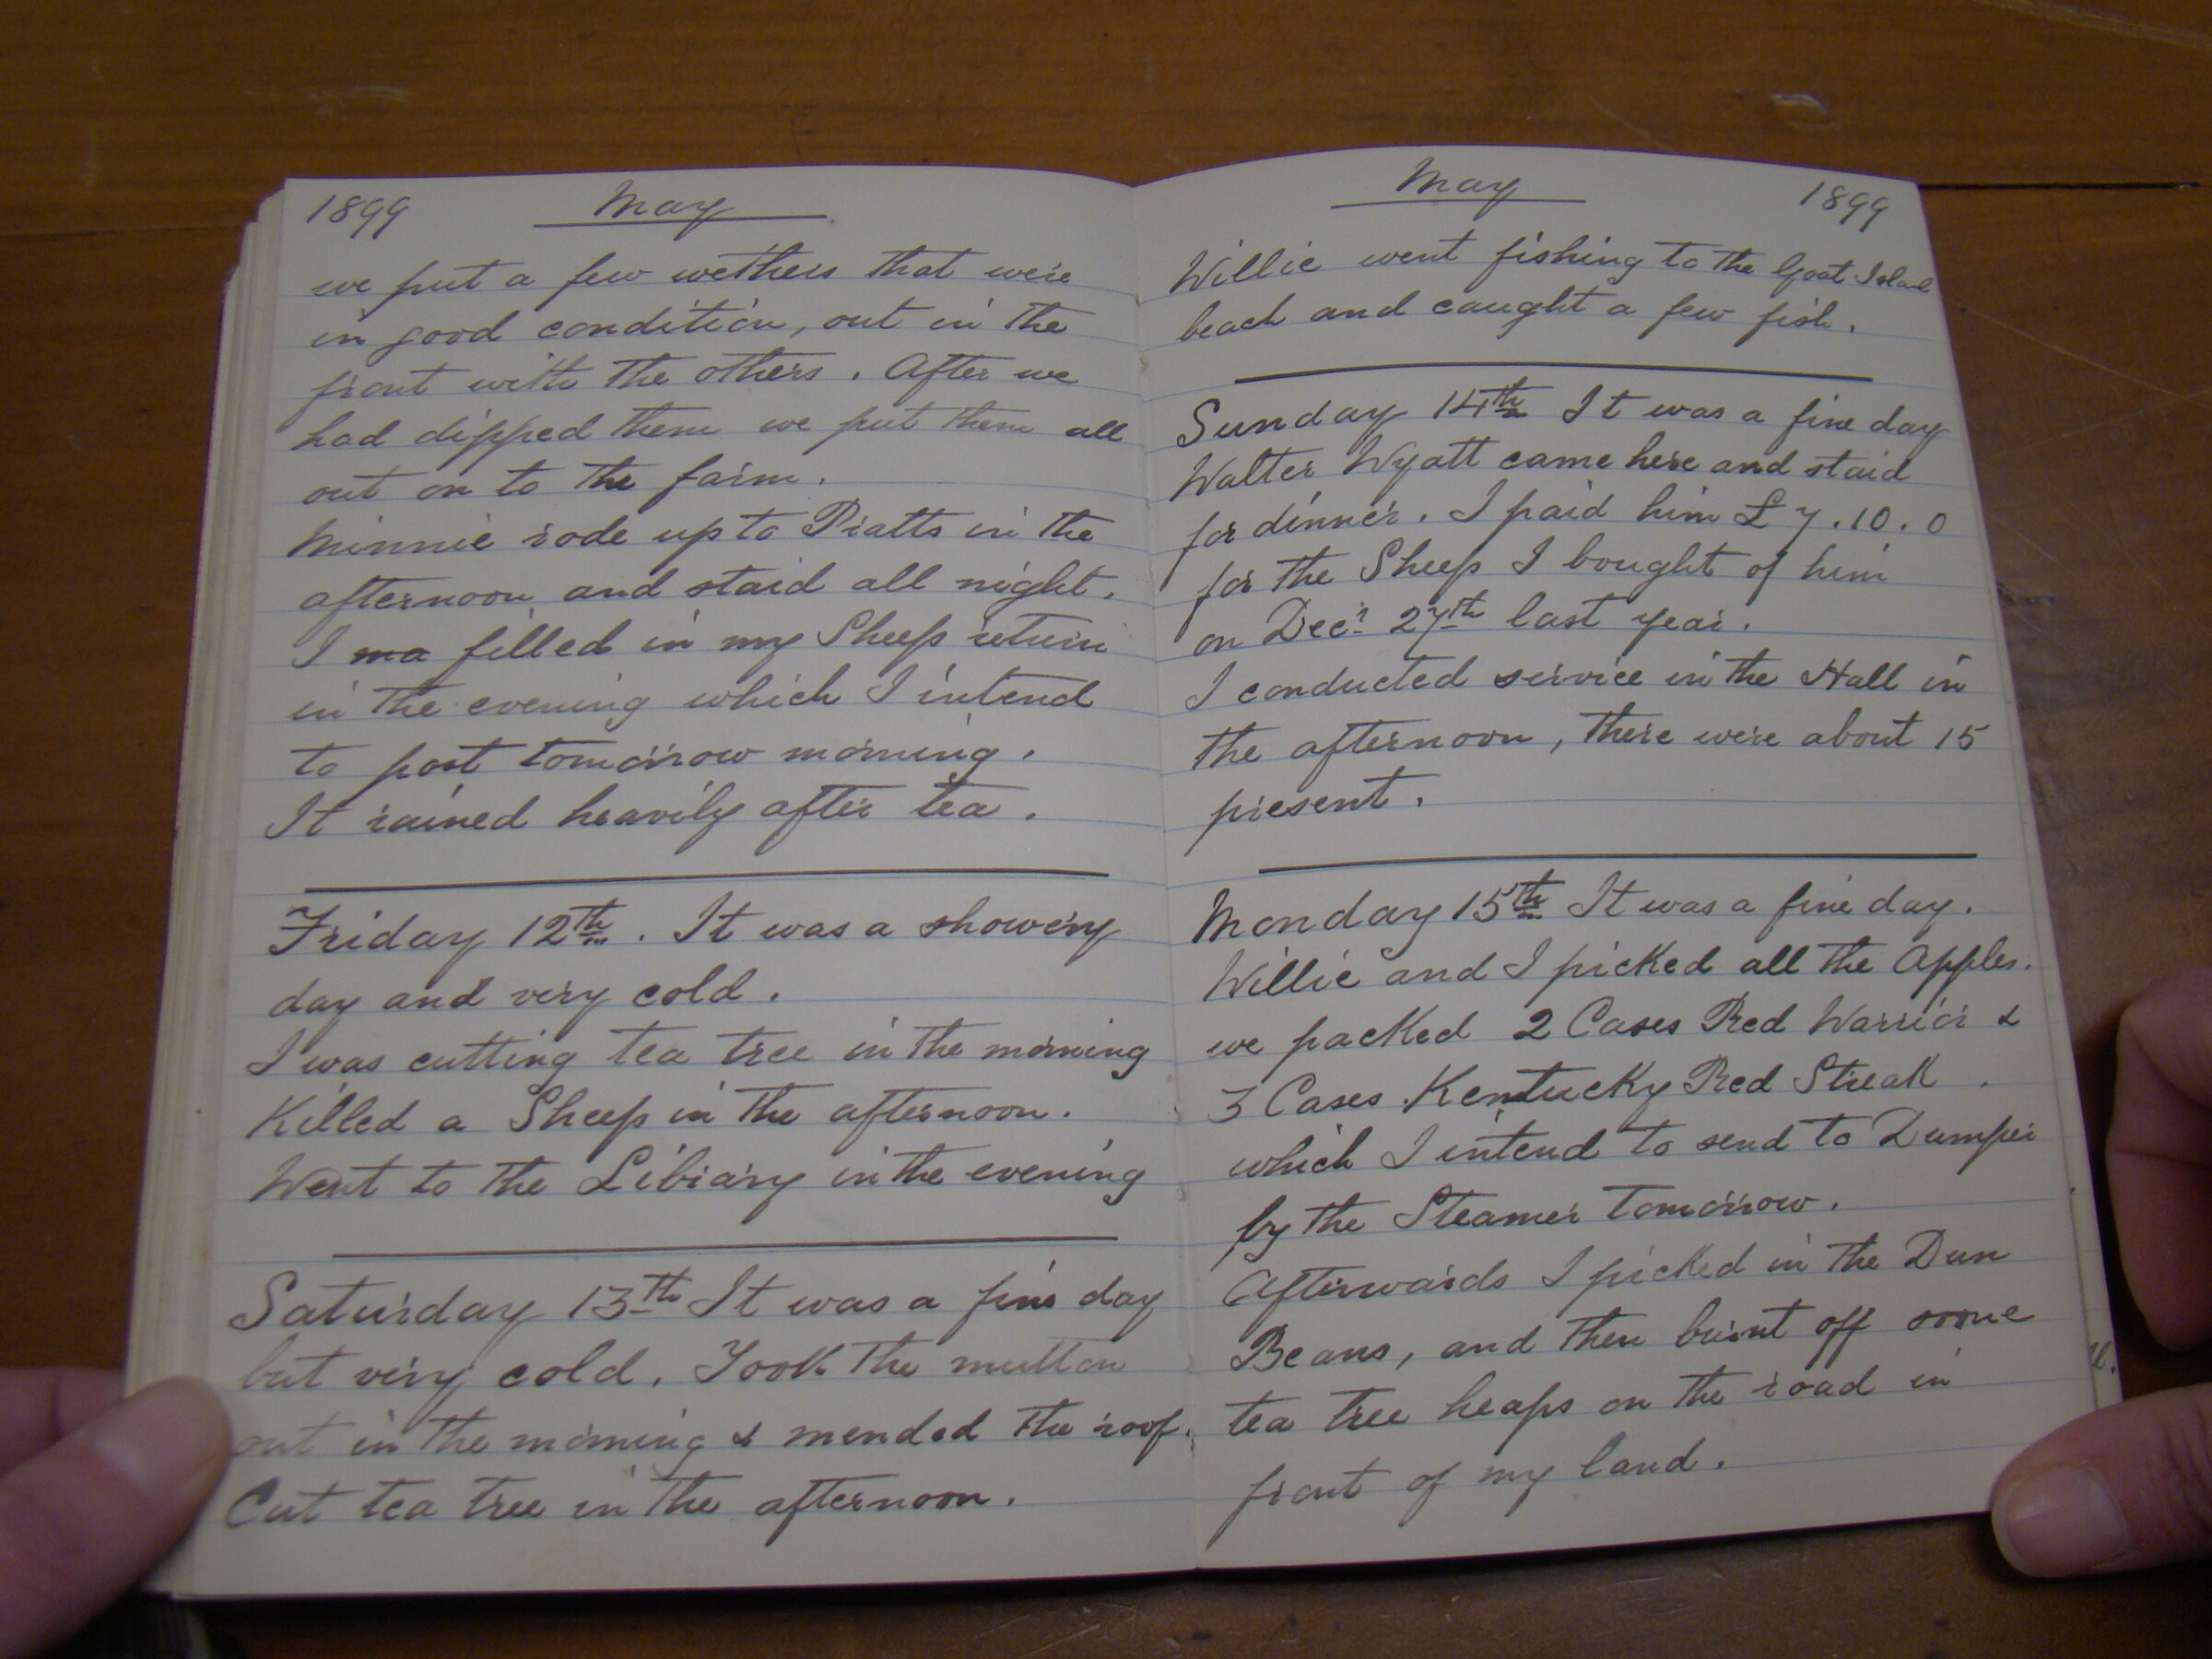 1899 May
we put a few wethers that were
in good condition, out in the
front with the others. After we
had dipped them we put them all
out on to the farm.
Minnie rode up to Pratts in the
afternoon and staid all night.
I ma filled in my Sheep return
in the evening which I intend
to post tomorrow morning.
It rained heavily after tea.
Friday 12th. It was a showery
day and very cold.
I was cutting tea tree in the morning
Killed a Sheep in the afternoon.
Went to the Library in the evening
Saturday 13th It was a fine day
but very cold. Took the mutton
out in the morning & mended the roof.
Cut tea tree in the afternoon.
May 1899
Willie went fishing to the Goat Island
beach and caught a few fish.
Sunday 14th It was a fine day
Walter Wyatt came here and staid
for dinner. I paid him £7.10.0
for the Sheep I bought of him
on Decr 27th last year.
I conducted service in the Hall in
the afternoon, there were about 15
present.
Monday 15th It was a fine day.
Willie and I picked all the Apples.
we packed 2 Cases Red Warrior &
3 Cases Kentucky Red Streak.
which I intend to send to Dumper
by the Steamer tomorrow.
Afterwards I picked in the Dun
Beans, and then burnt off some
tea tree heaps on the road in
front of my land.